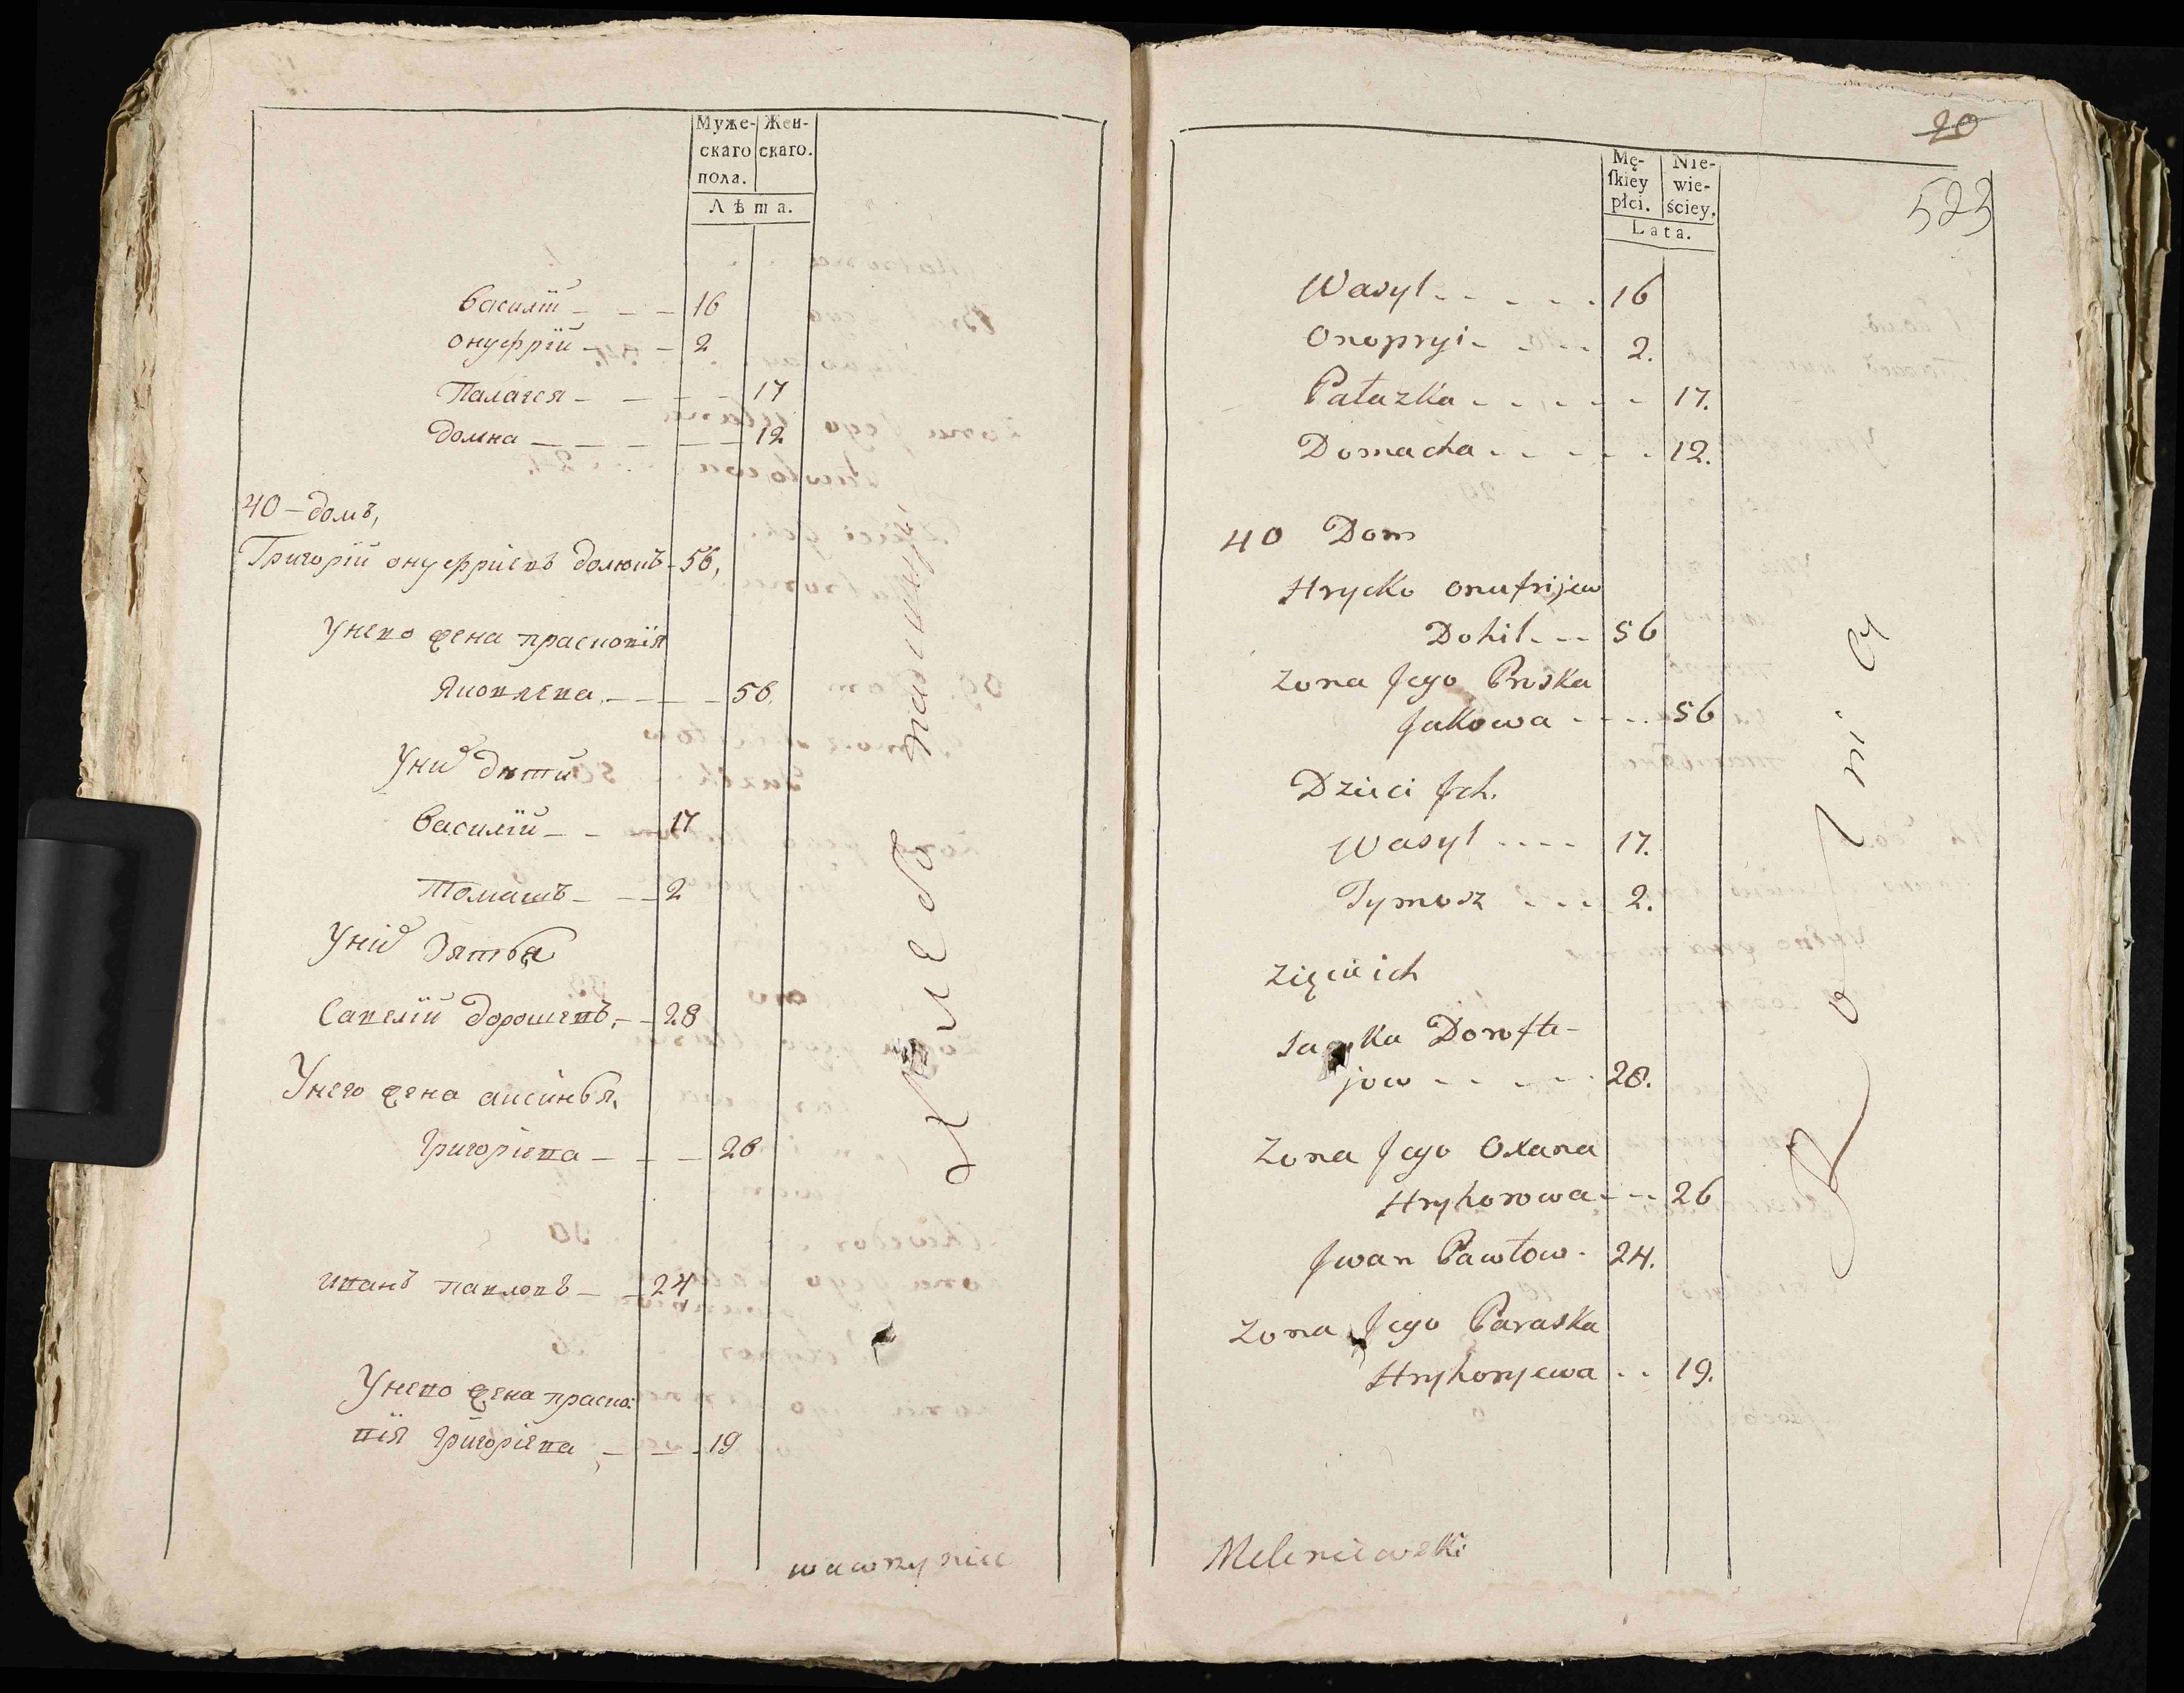 Муже-
скаго
пола.
Жен-
скаго.
Лѣта.
Василій — — — 16
Онуфрій — — — 2
Палагея — — — — 17
Домна — — — — — 12
40 – домъ,
Григорій Онуфріевъ 56,
У нево жена Прасковія
Яковлева — — — 56.
У них дѣти
Василій — — 17
Томашъ — — — 2
У них зятья
Савелій Дорошевъ, — — 28
У него жена Аксинья,
Григоріева — — — 26
Иванъ Павловъ — — 24
У нево жена Праско:
вія Григоріева, — — 19
Хлебо пашицы
wawrzyniec
20
523
Mę-
ſkiey
płci.
Nie-
wie-
ściey.
Lata.
Wasyl - - - - - 16
Onopryi - - - - 2.
Pałazka - - - - - 17.
Domacha - - - - - 12.
40 Dom
Hrycko Onufrijew
Dohil - - - 56
Zona Jego Proska
Jakowa - - - - 56
Dzieci Jch.
Wasyl - - - - 17.
Tymosz - - - - 2.
Zięcie ich
Dorofie-
jow - - - - - 28.
Zona Jego Oxana
Hryhorowa - - - 26
Jwan Pawłow - 24.
Zona Jego Paraska
Hryhoryewa - - 19.
Rolnicy
Meleniewski